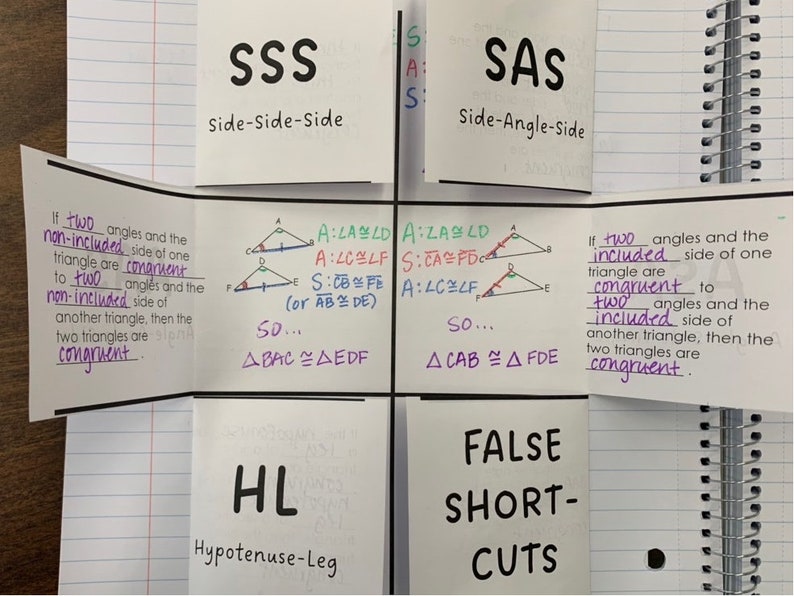 SSS
Side-Side-Side
S:
A:
S:
SAS
Side-Angle-Side
If two angles and the
non-included side of one
triangle are congruent
to two angles and the
non-included side of
another triangle, then the
two triangles are
congruent.
A
C
B
D
F
E
A: ∠A≅∠D
A: ∠C≅∠F
S: C̅B̅≅F̅E̅
(or A̅B̅≅D̅E̅)
SO...
△BAC≅△EDF
A: ∠A≅∠D
S: C̅A̅≅F̅D̅
A: ∠C≅∠F
A
C
B
D
F
E
SO...
△CAB≅△FDE
If two angles and the
included side of one
triangle are
congruent to
two angles and the
included side of
another triangle, then the
two triangles are
congruent.
HL
Hypotenuse-Leg
FALSE
SHORT-
CUTS